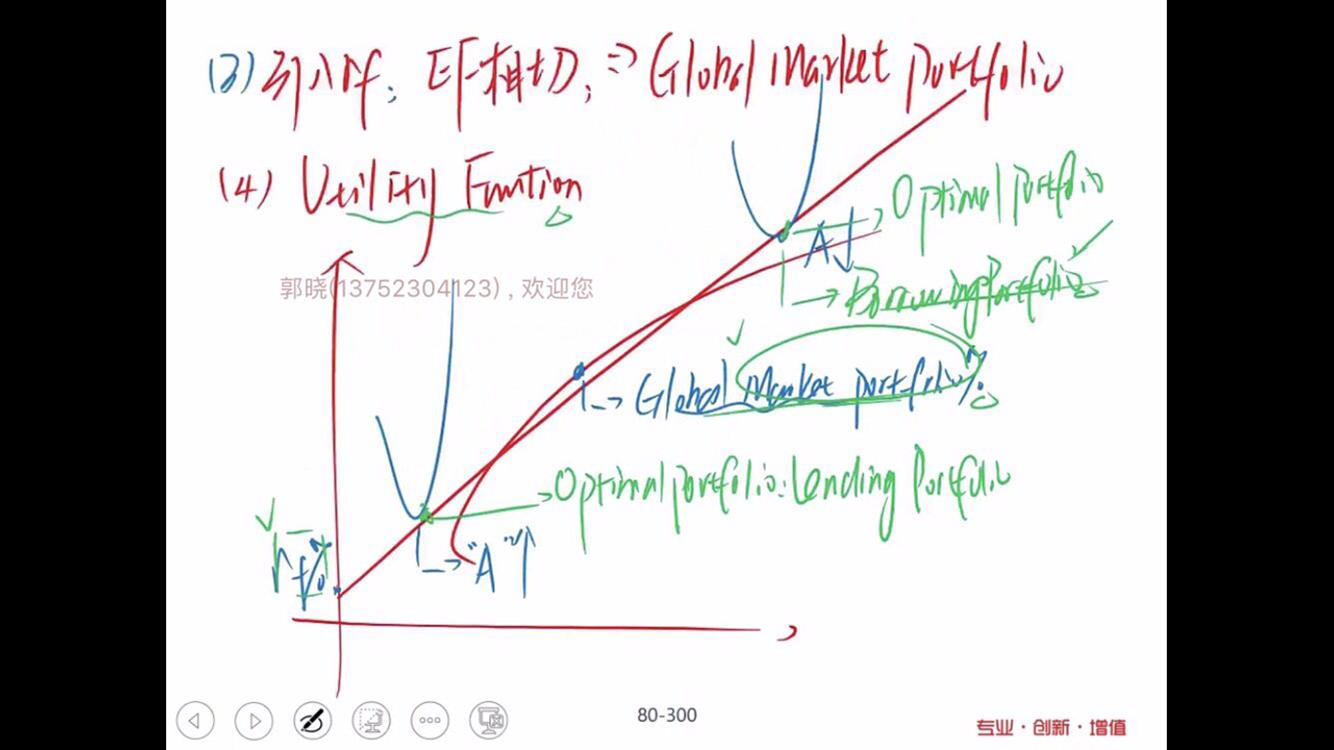 (3) 引入rf, EF相切, => Global Market Portfolio
(4) Utility Function
Optimal portfolio
A↓
郭晓(13752304123) , 欢迎您
→ Borrowing Portfolio
→ Global Market portfolio%
→ Optimal portfolio: Lending Portfolio
rf%
→ "A"↑
80-300
专业·创新·增值